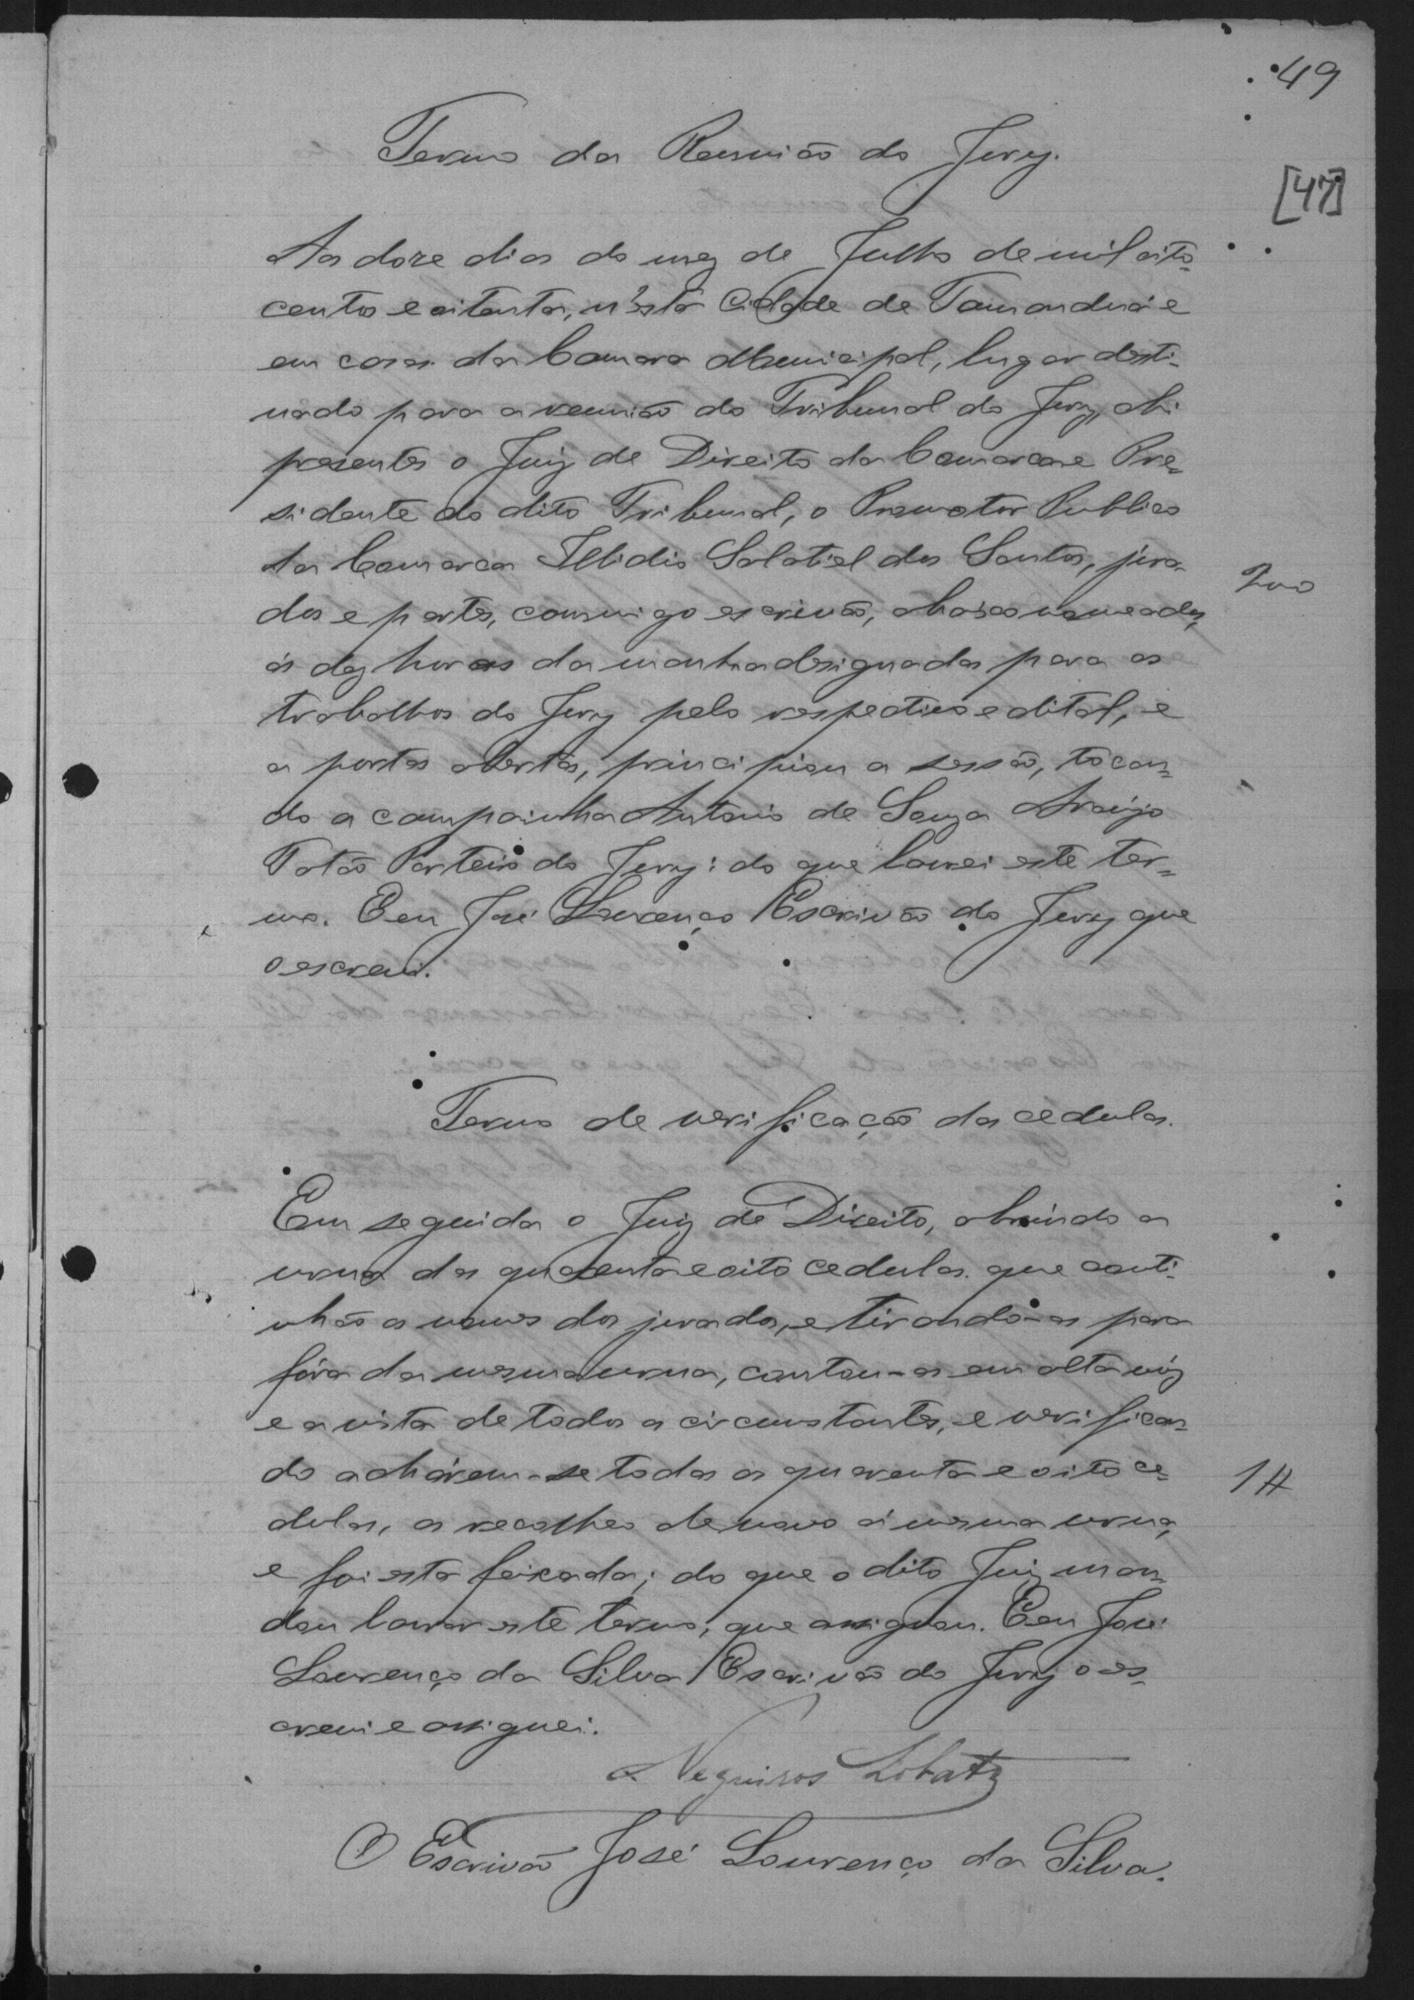 49
[47]
Termo da Reunião do Jury.
Aos doze dias do mez de Julho de mil oito-
centos e oitenta, n'esta Cidade de Tamanduá e
em casa da Camara Municipal, lugar desti-
nado para a reunião do Tribunal do Jury, ahi
presentes o Juiz de Direito da Comarca e Pre-
sidente do dito Tribunal, o Promotor Publico
da Comarca Illidio Salatiel dos Santos, jura-
dos e partes, commigo escrivão, abaixo nomeado,
ás dez horas da manhã designadas para os
trabalhos do Jury pelo respectivo edital, e
a portas abertas, principiou a sessão, tocan-
do a campainha Antonio de Souza Araujo
Totão Porteiro do Jury: do que lavrei este ter-
mo. Eeu José Lourenço Escrivão do Jury que
o escrevi.
200
Termo de verificação das cedulas.
Em seguida o Juiz de Direito, abrindo a
urna das quarenta e oito cedulas que conti-
nhão os nomes dos jurados, e tirando-as para
fóra da mesma urna, contou-as em alta voz
e a vista de todos os circunstantes, e verifican-
do acharem-se todas as quarenta e oito ce-
dulas, as recolheo de novo á mesma urna,
e foi esta feixada; do que o dito Juiz man-
dou lavrar este termo, que assignou. Eeu José
Lourenço da Silva Escrivão do Jury o es-
crevi e assignei.
1#
Negueiros Lobato
O Escrivão José Lourenço da Silva.